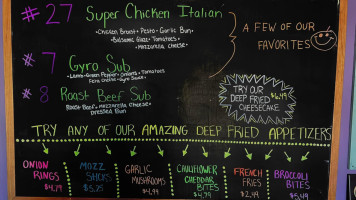 #27 Super Chicken Italian
•Chicken Breast • Pesto • Garlic Bun•
•Balsamic Glaze • Tomatoes•
•Mozzarella Cheese•
A FEW OF OUR
FAVORITES
#7 Gyro Sub
•Lamb • Green Pepper • Onions • Tomatoes
Feta Cheese • Gyro Sauce•
#8 Roast Beef Sub
Roast Beef • Mozzarella Cheese•
Dressed Bun
TRY OUR $6.49
DEEP FRIED
CHEESECAKE
TRY ANY OF OUR AMAZING DEEP FRIED APPETIZERS
ONION
RINGS
$4.79
MOZZ
STICKS
$5.25
GARLIC
MUSHROOMS
$4.99
CAULIFLOWER
CHEDDAR
BITES
$4.79
FRENCH
FRIES
$2.49
BROCCOLI
BITES
$5.49